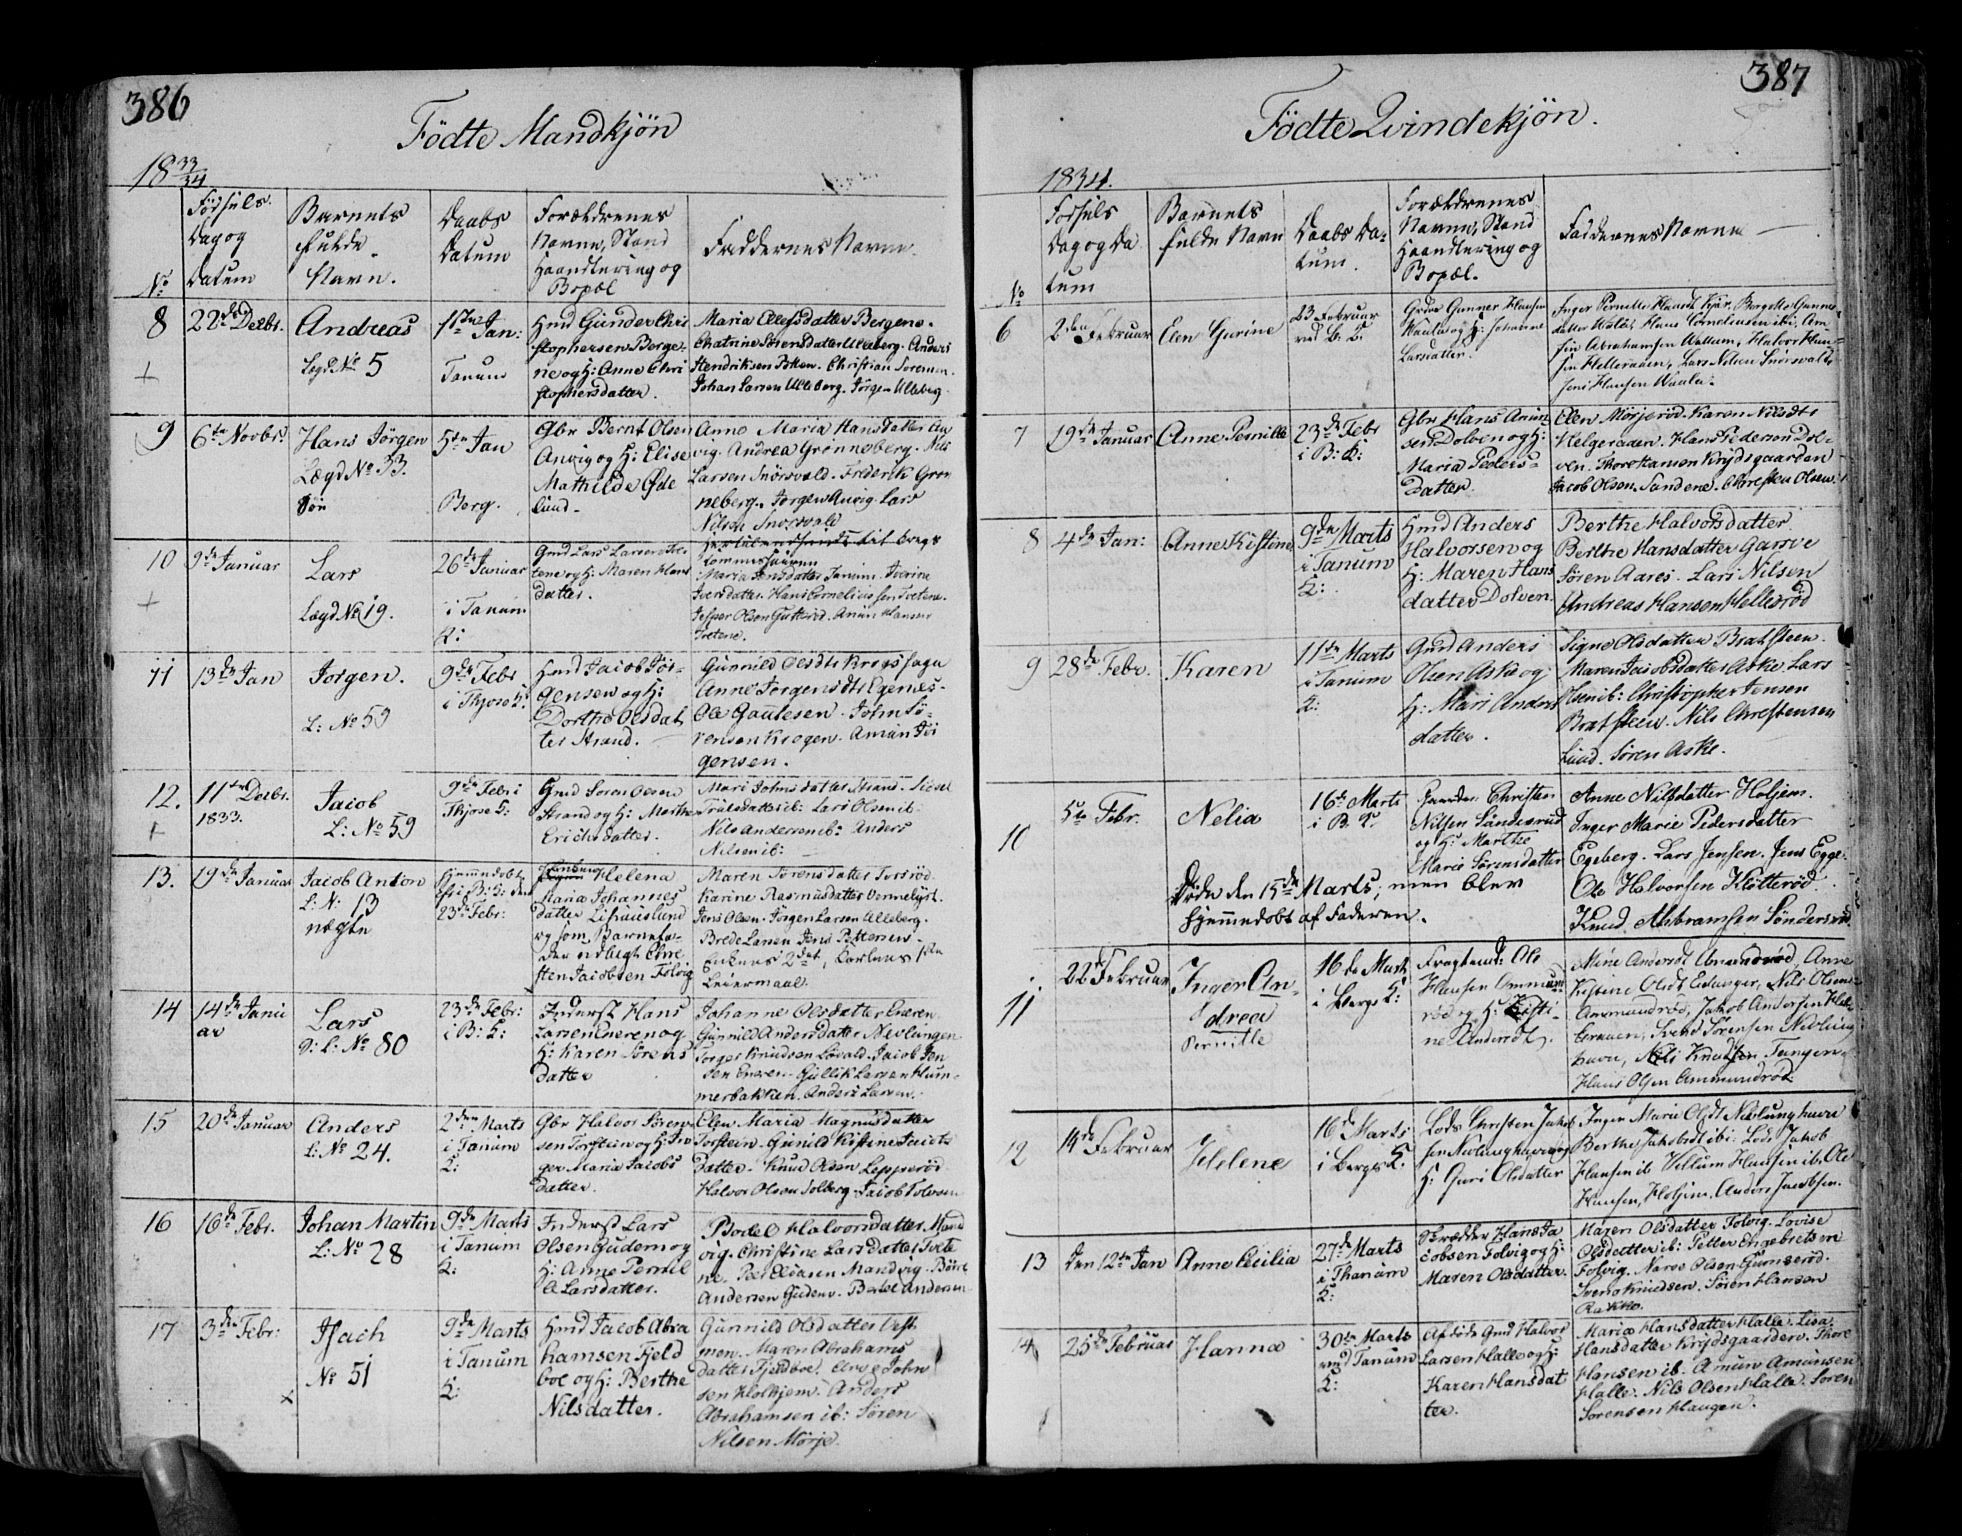 386
Födte Mandkjön
18 33/34
No
Födsels Dag og Datum
Barnets fulde Navn.
Daabs Datum
Forældrenes Navne, Stand Haandtering og Bopæl
Faddernes Navne.
8
22de Decbr.
Andreas
Lægd No 5
1ste Jan:
Tanum
Hmd Gunder Chri
stophersen Berge-
ne og H: Anne Chri
stophersdatter.
Maria Ellefsdatter Bergene.
Chatrine Sörensdatter Ulleberg. Anders
Hendriksen Christian Sörensen.
Johan Larsen Ulleberg. Jörgen Ulleberg
9
6te Novbr.
Hans Jörgen
Lægd No 33.
5te Jan
Berg.
Gbr Bernt Olsen
Anvig og H: Elise
Mathilde Öde
lund.
Anne Maria Hansdatter An
vig. Andrea Grönneberg. Nils
Larsen Snörsvold. Frederik Grön
neberg. Jörgen Anvig. Lars
Nilsen Snorsvold
10
9de Januar
Lars
Lægd No 19.
26de Januar
i Tanum
K:
Gmd Lars Larsen Tve
tene og H: Maren Hans
datter.
Maria Jensdatter Tanum. Iverine
Iversdatter. Hans Corneliussen Tvetene.
Jesper Olsen Amun Hansen
Tvetene.
11
13de Jan
Jorgen.
L: No 59
9de Febr
i Thjose K:
Hmd Jacob Jör-
gensen og H:
Dorthe Olsdat
ter Strand.
Gunnild Olsdtr Krogsfage
Anne Jorgensdtr Egenes-
Ole Gautesen. John Sö-
rensen Krogen. Amun Jör
gensen.
12.
11te Decbr.
1833.
Jacob
L: No 59
9de Febr i
Thjose K:
Gmd Soren Olsen
Strand og H: Marthe
Erichsdatter.
Mari Johnsdatter Strand. Sissel
Trulsdatter ib: Lars Olsen ib-
Nils Andersen ib: Anders
Nilsen ib:
13.
19de Januar
Jacob Anton
L: N: 13
nægte
Hjemmedöbt
23de Febr:
Helena
Maria Johannes
datter
og som Barnefa-
der udlagt Chri
sten Jacobsen Folvig
Maren Sörensdatter Torsröd.
Karine Rasmusdatter Vennelyst.
Jens Olsen. Jörgen Larsen Ulleberg.
Brede Larsen Jens Pettersen-
Enkens 2det, Karlens 1ste
Leiermaal.
14
14de Janu
ar
Lars
L: No 80
23de Febr:
i B: K:
Inderst Hans
Larsen Eneren og
H: Karen Sörens
datter
Johanne Olsdatter Eneren.
Gunnild Andersdatter Nevlungen
Jorgen Knudsen Lövald. Jacob Jen
sen Eneren. Gullik Larsen Hum-
merbakken. Anders Larsen.
15
20de Januar
Anders
L: No 24.
2den Marts
i Tanum
K:
Gbr Halvor Sören
sen Torstein og H: In
ger Maria Jacobs
datter.
Elen Maria Magnusdatter
Torstein. Gunild Kistine Jacobs
datter. Knud Olsen Lepperöd
Halvor Olsen Solberg. Jacob Tolvsen
16
16de Febr.
Johan Martin
L: No 28
9de Marts
i Tanum
K:
Inderst Lars
Olsen Guden og
H: Anne Pernil
le Larsdatter.
Bodel Halvorsdatter Mand
vig. Christine Larsdatter Tvete
ne. Peer Eliasen Mandvig. Börre
Andersen Guden. Bertel Andersen
17
3de Febr:
Isach
No 51
9de Marts
i Tanum
K:
Hmd Jacob Abra
hamsen Fjeld
boe og H: Berthe
Nilsdatter.
Gunnild Olsdatter Vest
men. Maren Abrahams
datter Fjeldboe. Arve John
sen Holhjem. Anders
Abrahamsen ib: Sören
Nilsen Mörje
387
Födte Qvindekjön.
1834.
No
Fodsels Dag og Datum
Barnets fulde Navn
Daabs Datum.
Forældrenes Navne, Stand Haandtering og Bopæl.
Faddernes Navne
6
2den Februar
Elen Gurine
23 Februar
ved B. K.
Gunner Hansen
Waale og H: Johanne
Larsdatter.
Inger Pernille Börgitte Gunners
datter Wale, Hans Corneliusen ibi, Am
fin Abrahamsen Wallum, Halvor Han-
sen Helleraaen, Lars Nilsen Snörsvold
Jens Hansen Waale.
7
19de Januar
Anne Pernille
23de Febr
i B: K:
Gbr Hans Amun
sen Dolven og H:
Maria Peders
datter
Elen Mörjeröd. Karen Nilsdtr
Helgeraaen. Hans Pederson Dol-
ven. Thore Hansen Krydsgaarden
Jacob Olsen Sandene. Christen Olsen.
8
4de Jan:
Anne Kistine
9de Marts
i Tanum
K:
Hmd Anders
Halvorsen og
H: Maren Hans
datter Dolven.
Berthe Halvorsdatter
Berthe Hansdatter
Sören Aares. Lars Nilsen
Andreas Hansen Helleröd
9
28de Febr.
Karen
11te Marts
i Tanum
K:
Gmd Anders
Olsen Aske og
H: Mari Anders
datter.
Signe Olsdatter Bratsteen.
Maren Jacobsdatter Aske Lars
Olsen ib: Christopher Jensen
Bratsteen. Nils Christensen
Lund. Sören Aske.
10
5te Febr.
Nelia
16de Marts
i B. K.
Christen
Nilsen Söndersröd
og H: Marthe
Marie Sörensdatter
Döde den 15de Marts, men blev
hjemmedöbt af Faderen.
Anne Nilsdatter Holjem.
Inger Marie Pedersdatter
Egeberg. Lars Jensen. Jens Egge
Ole Halvorsen Klötteröd.
Knud Abramsen Söndersröd.
11
22de Februar
Inger An-
drea
Pernille
16de Marts
i Bergs K:
Fragtemd: Ole
Hansen Ommun
röd og H: Kisti-
ne Andersdt.
Mine Andersdt Ommundröd, Anne
Kistine Olsdt Eidanger, Nils Olsen
Ommundröd, Jakob Andersen Hel-
geraaen, Sörensen Nevlung
havn, Nils Knudsen Tangen
Hans Olsen Ommundröd.
12
14de Februar
Helene
16de Marts
i Bergs K:
Lods Christen Jakob
sen Nevlunghavn og
H: Guri Olsdatter
Inger Marie Olsdt Nevlunghavn
Berthe Jakobsdt ibi: Lods Jakob
Hansen ib Villum Hansen ib, Ole
Hansen, Holjem, Anders Jacobsen.
13
Den 12te Jan
Anne Cecilia
27de Marts
i Thanum
K:
Skrædder Hans Ja
cobsen Folvig og H:
Maren Olsdatter.
Maren Olsdatter Folvig. Lovise
Olsdatter ib: Petter Engebretsen
Folvig. Narve Olsen Gumseröd.
Iver Knudsen. Sören Hansen
Rakke.
14
25de Februar
Hanna
30te Marts
ved Tanum
K:
Afdöde Gmd Halvor
Larsen Halle og H:
Karen Hansdat
ter.
Maria Hansdatter Halle. Lisa
Hansdatter Krydsgaarden. Thore
Hansen ib. Amun Amunsen
Halle. Nils Olsen Halle. Soren
Sorensen Haugen.